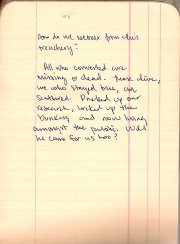 How do we recover from this
treachery?
All who converted are
missing or dead. Those alive,
we who stayed true, are
scattered. Packed up our
research, locked up the
bunkers and now hiding
amongst the public. Will
he come for us too?